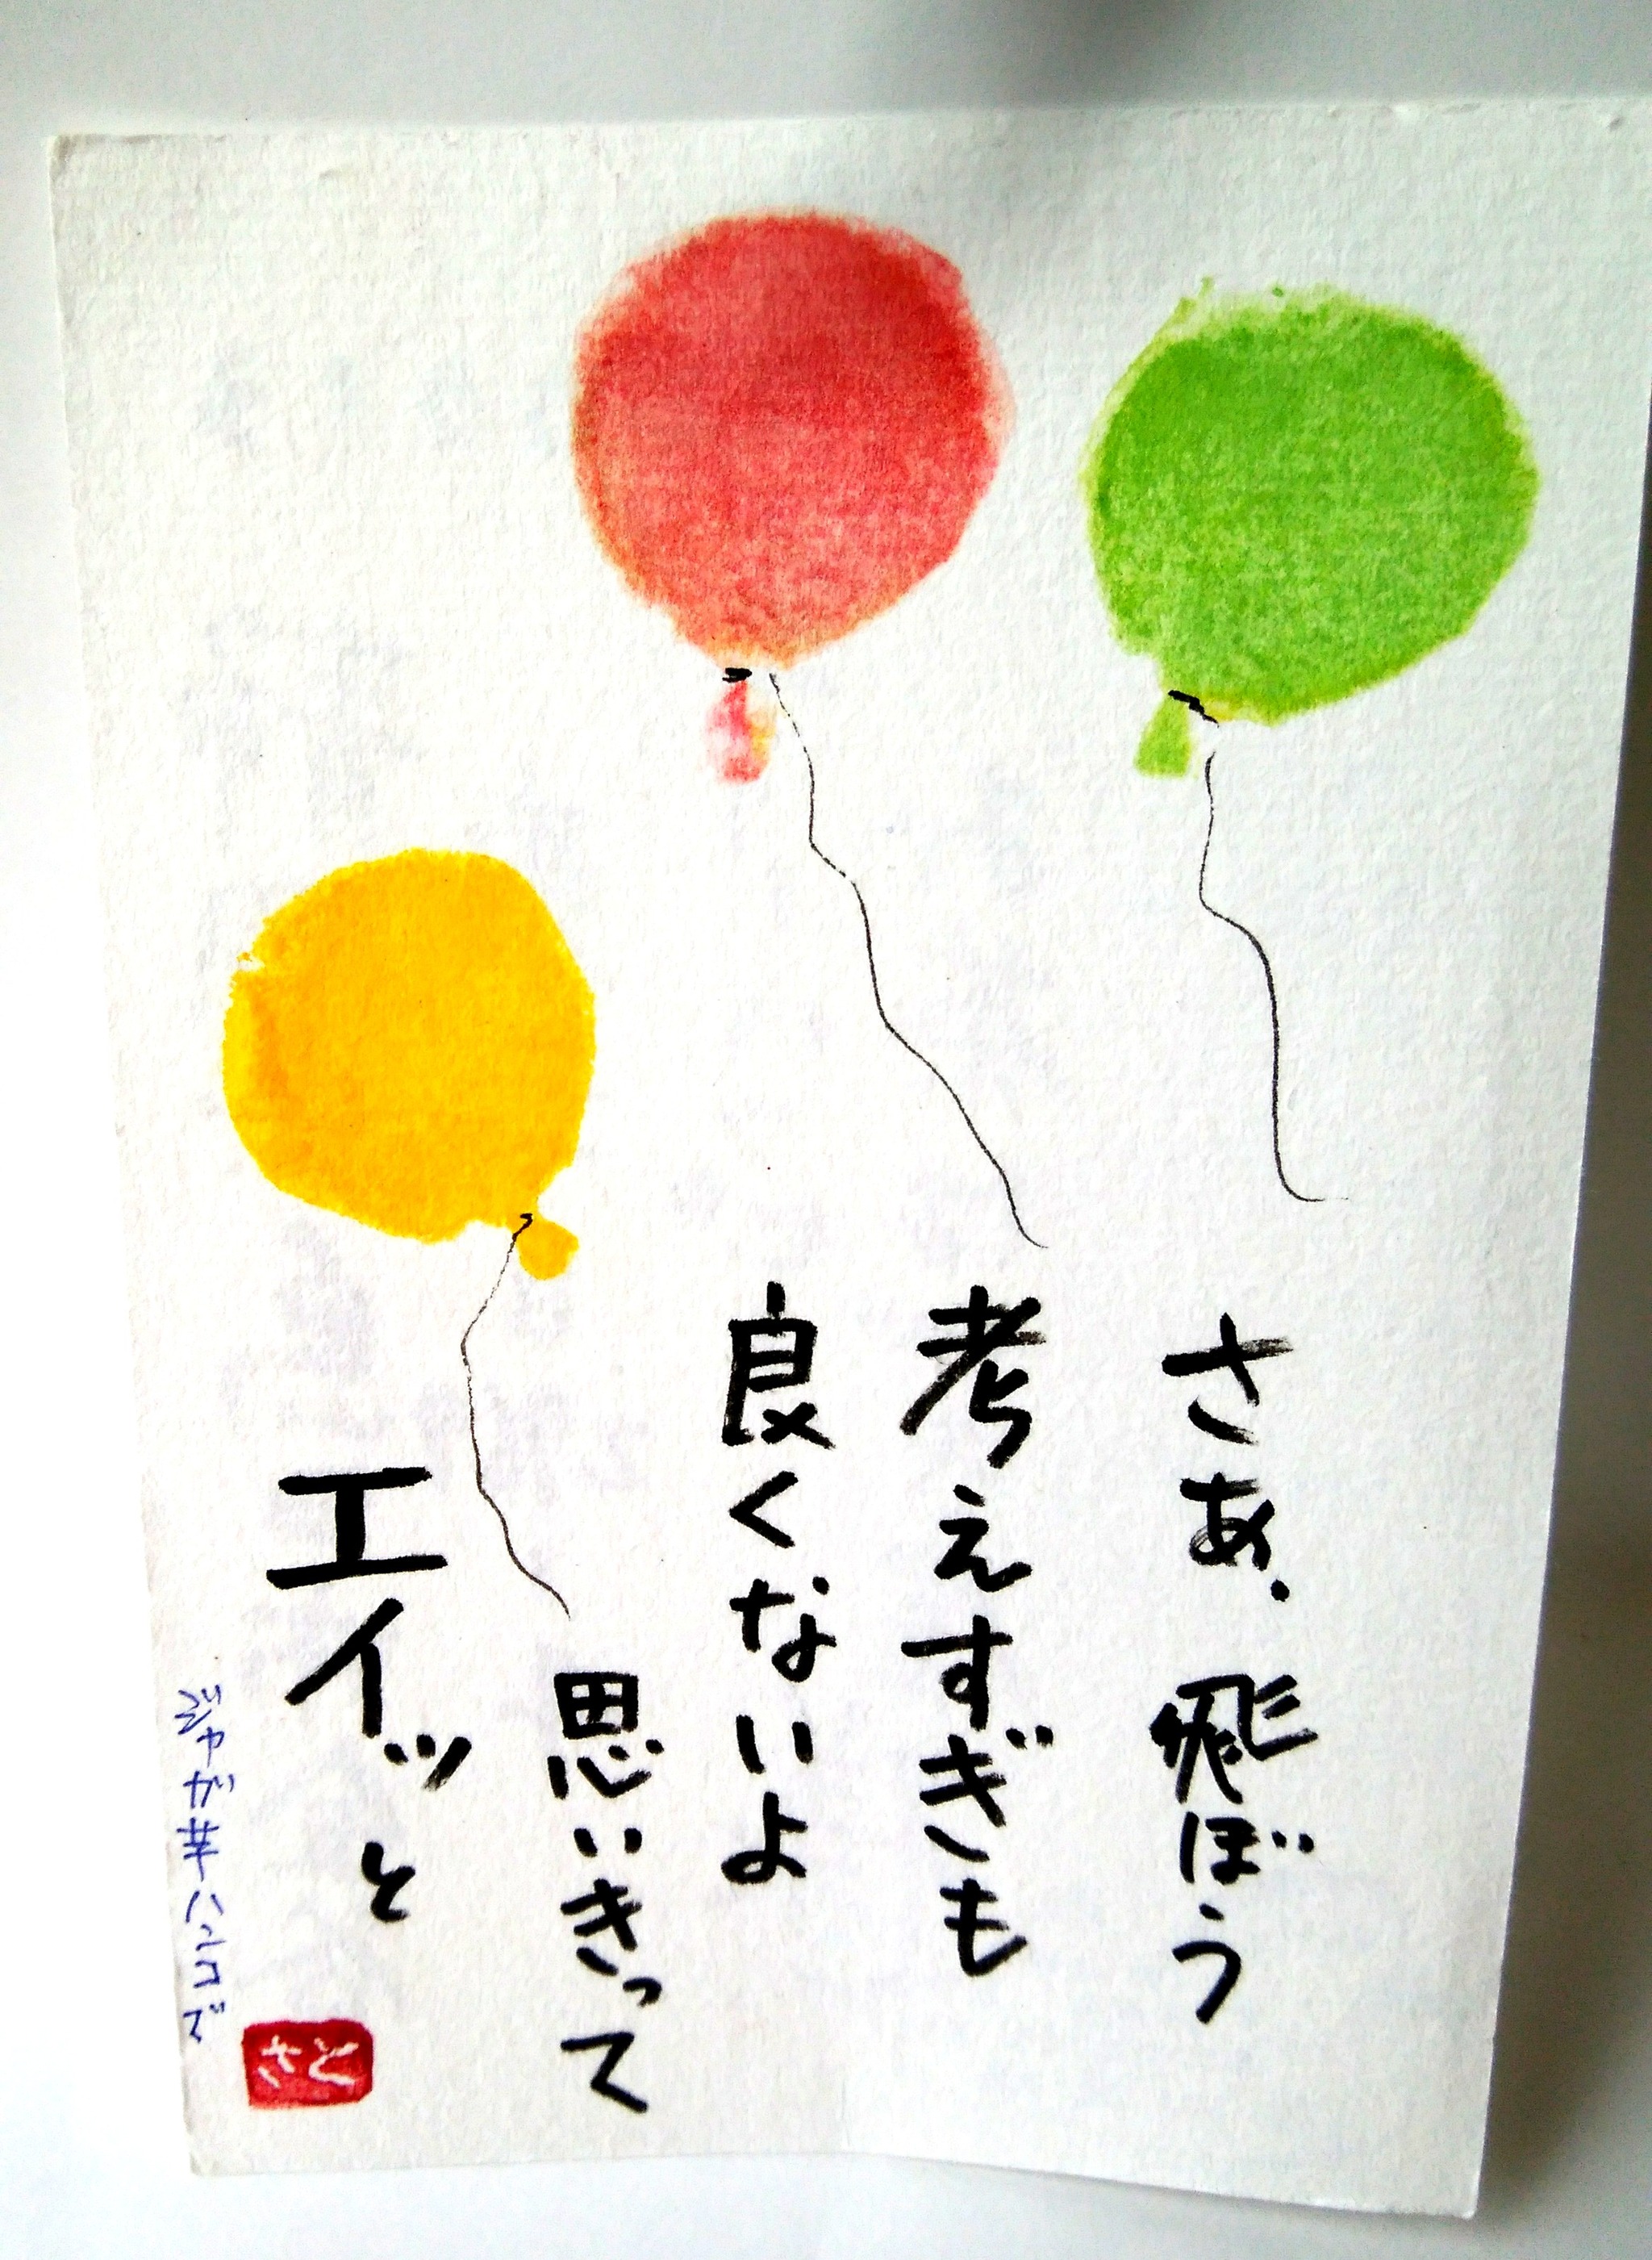 さあ、飛ぼう
考えすぎも
良くないよ
思いきって
エイッと
ジャガ芋ハンコで
さと